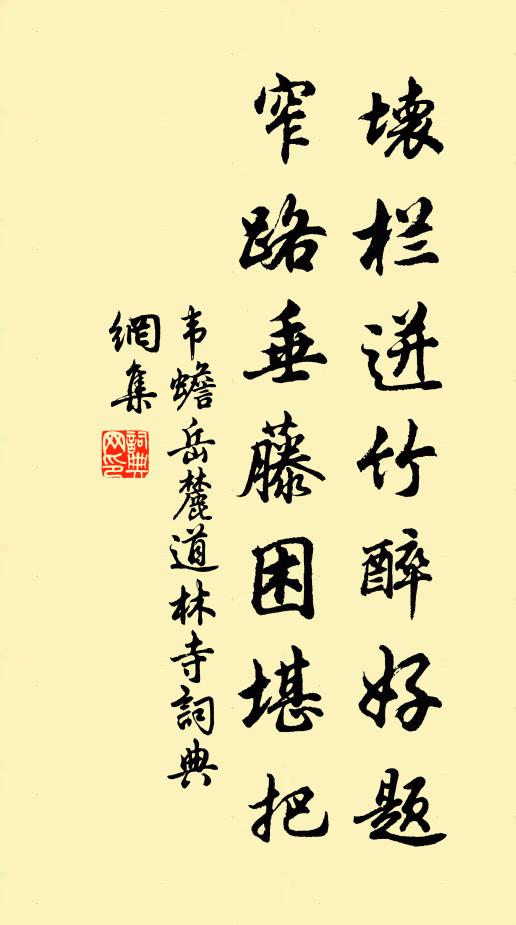 壊栏迸竹醉好题
窄路垂藤困堪把
韦蟾岳麓道林寺詞典
網集
詞典
网印